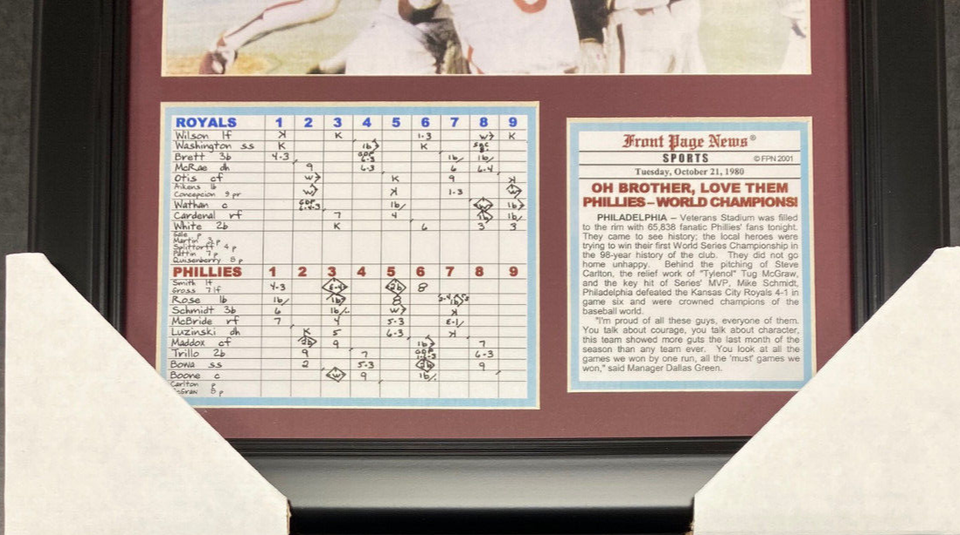 ROYALS 1 2 3 4 5 6 7 8 9
Wilson lf K K 1-3 W K
Washington ss K 1b K SAC 8
Brett 3b 4-3 GDP 6-3 1b 1b
McRae dh 9 6-3 6 6-4
Otis cf W K 9 K
Aikens 1b
Concepcion 9 pr W K 1-3 W
Wathan c GDP 6-4-3 1b W 1b
Cardenal rf 7 4 1b 1b
White 2b K 6 3 3
Gale p
Martin 3 p
Splittorff 4 p
Pattin 7 p
Quisenberry 8 p
PHILLIES 1 2 3 4 5 6 7 8 9
Smith lf
Gross 7 lf 4-3 6-4 2b 8
Rose 1b 1b 1b 8 1b
Schmidt 3b 6 1b W K
McBride rf 7 4 5-3 E-1
Luzinski dh K 5 6-3 K
Maddox cf 2b 9 1b 7
Trillo 2b 9 7 GDP 6-3
Bowa ss 2 5-3 2b 9
Boone c W 9 1b
Carlton p
McGraw 8 p
Front Page News®
SPORTS ©FPN 2001
Tuesday, October 21, 1980
OH BROTHER, LOVE THEM
PHILLIES – WORLD CHAMPIONS!
PHILADELPHIA – Veterans Stadium was filled
to the rim with 65,838 fanatic Phillies' fans tonight.
They came to see history; the local heroes were
trying to win their first World Series Championship in
the 98-year history of the club. They did not go
home unhappy. Behind the pitching of Steve
Carlton, the relief work of "Tylenol" Tug McGraw,
and the key hit of Series' MVP, Mike Schmidt,
Philadelphia defeated the Kansas City Royals 4-1 in
game six and were crowned champions of the
baseball world.
"I'm proud of all these guys, everyone of them.
You talk about courage, you talk about character,
this team showed more guts the last month of the
season than any team ever. You look at all the
games we won by one run, all the 'must' games we
won," said Manager Dallas Green.